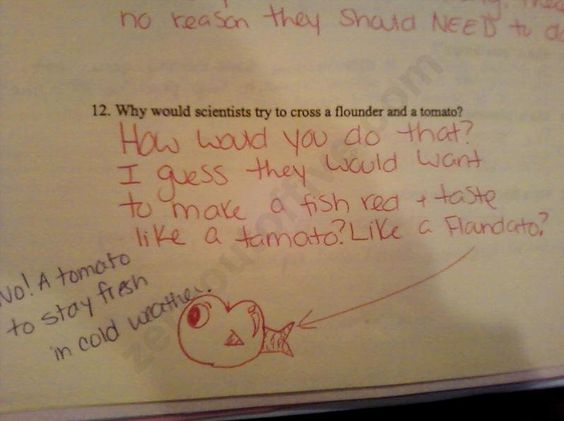 no reason they should NEED to do
12. Why would scientists try to cross a flounder and a tomato?
How would you do that?
I guess they would want
to make a fish red + taste
like a tamato? Like a Flandato?
No! A tomato
to stay fresh
in cold weather.